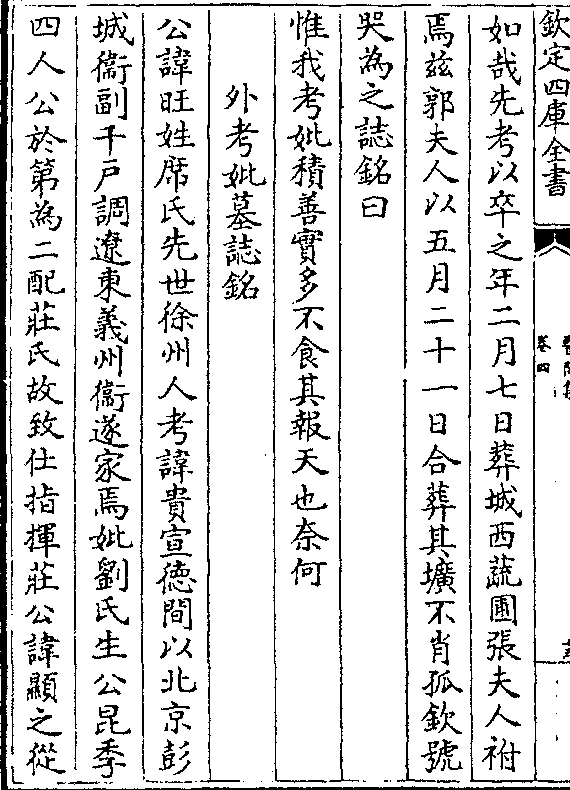 欽定四庫全書
卷四
如哉先考以卒之年二月七日葬城西蔬圃張夫人祔
焉玆郭夫人以五月二十一日合葬其壙不肖孤欽號
哭為之誌銘曰
惟我考妣積善實多不食其報天也奈何
外考妣墓誌銘
公諱旺姓席氏先世徐州人考諱貴宣德間以北京彭
城衞副千戶調遼東義州衞遂家焉妣劉氏生公昆季
四人公於第為二配莊氏故致仕指揮莊公諱顯之從